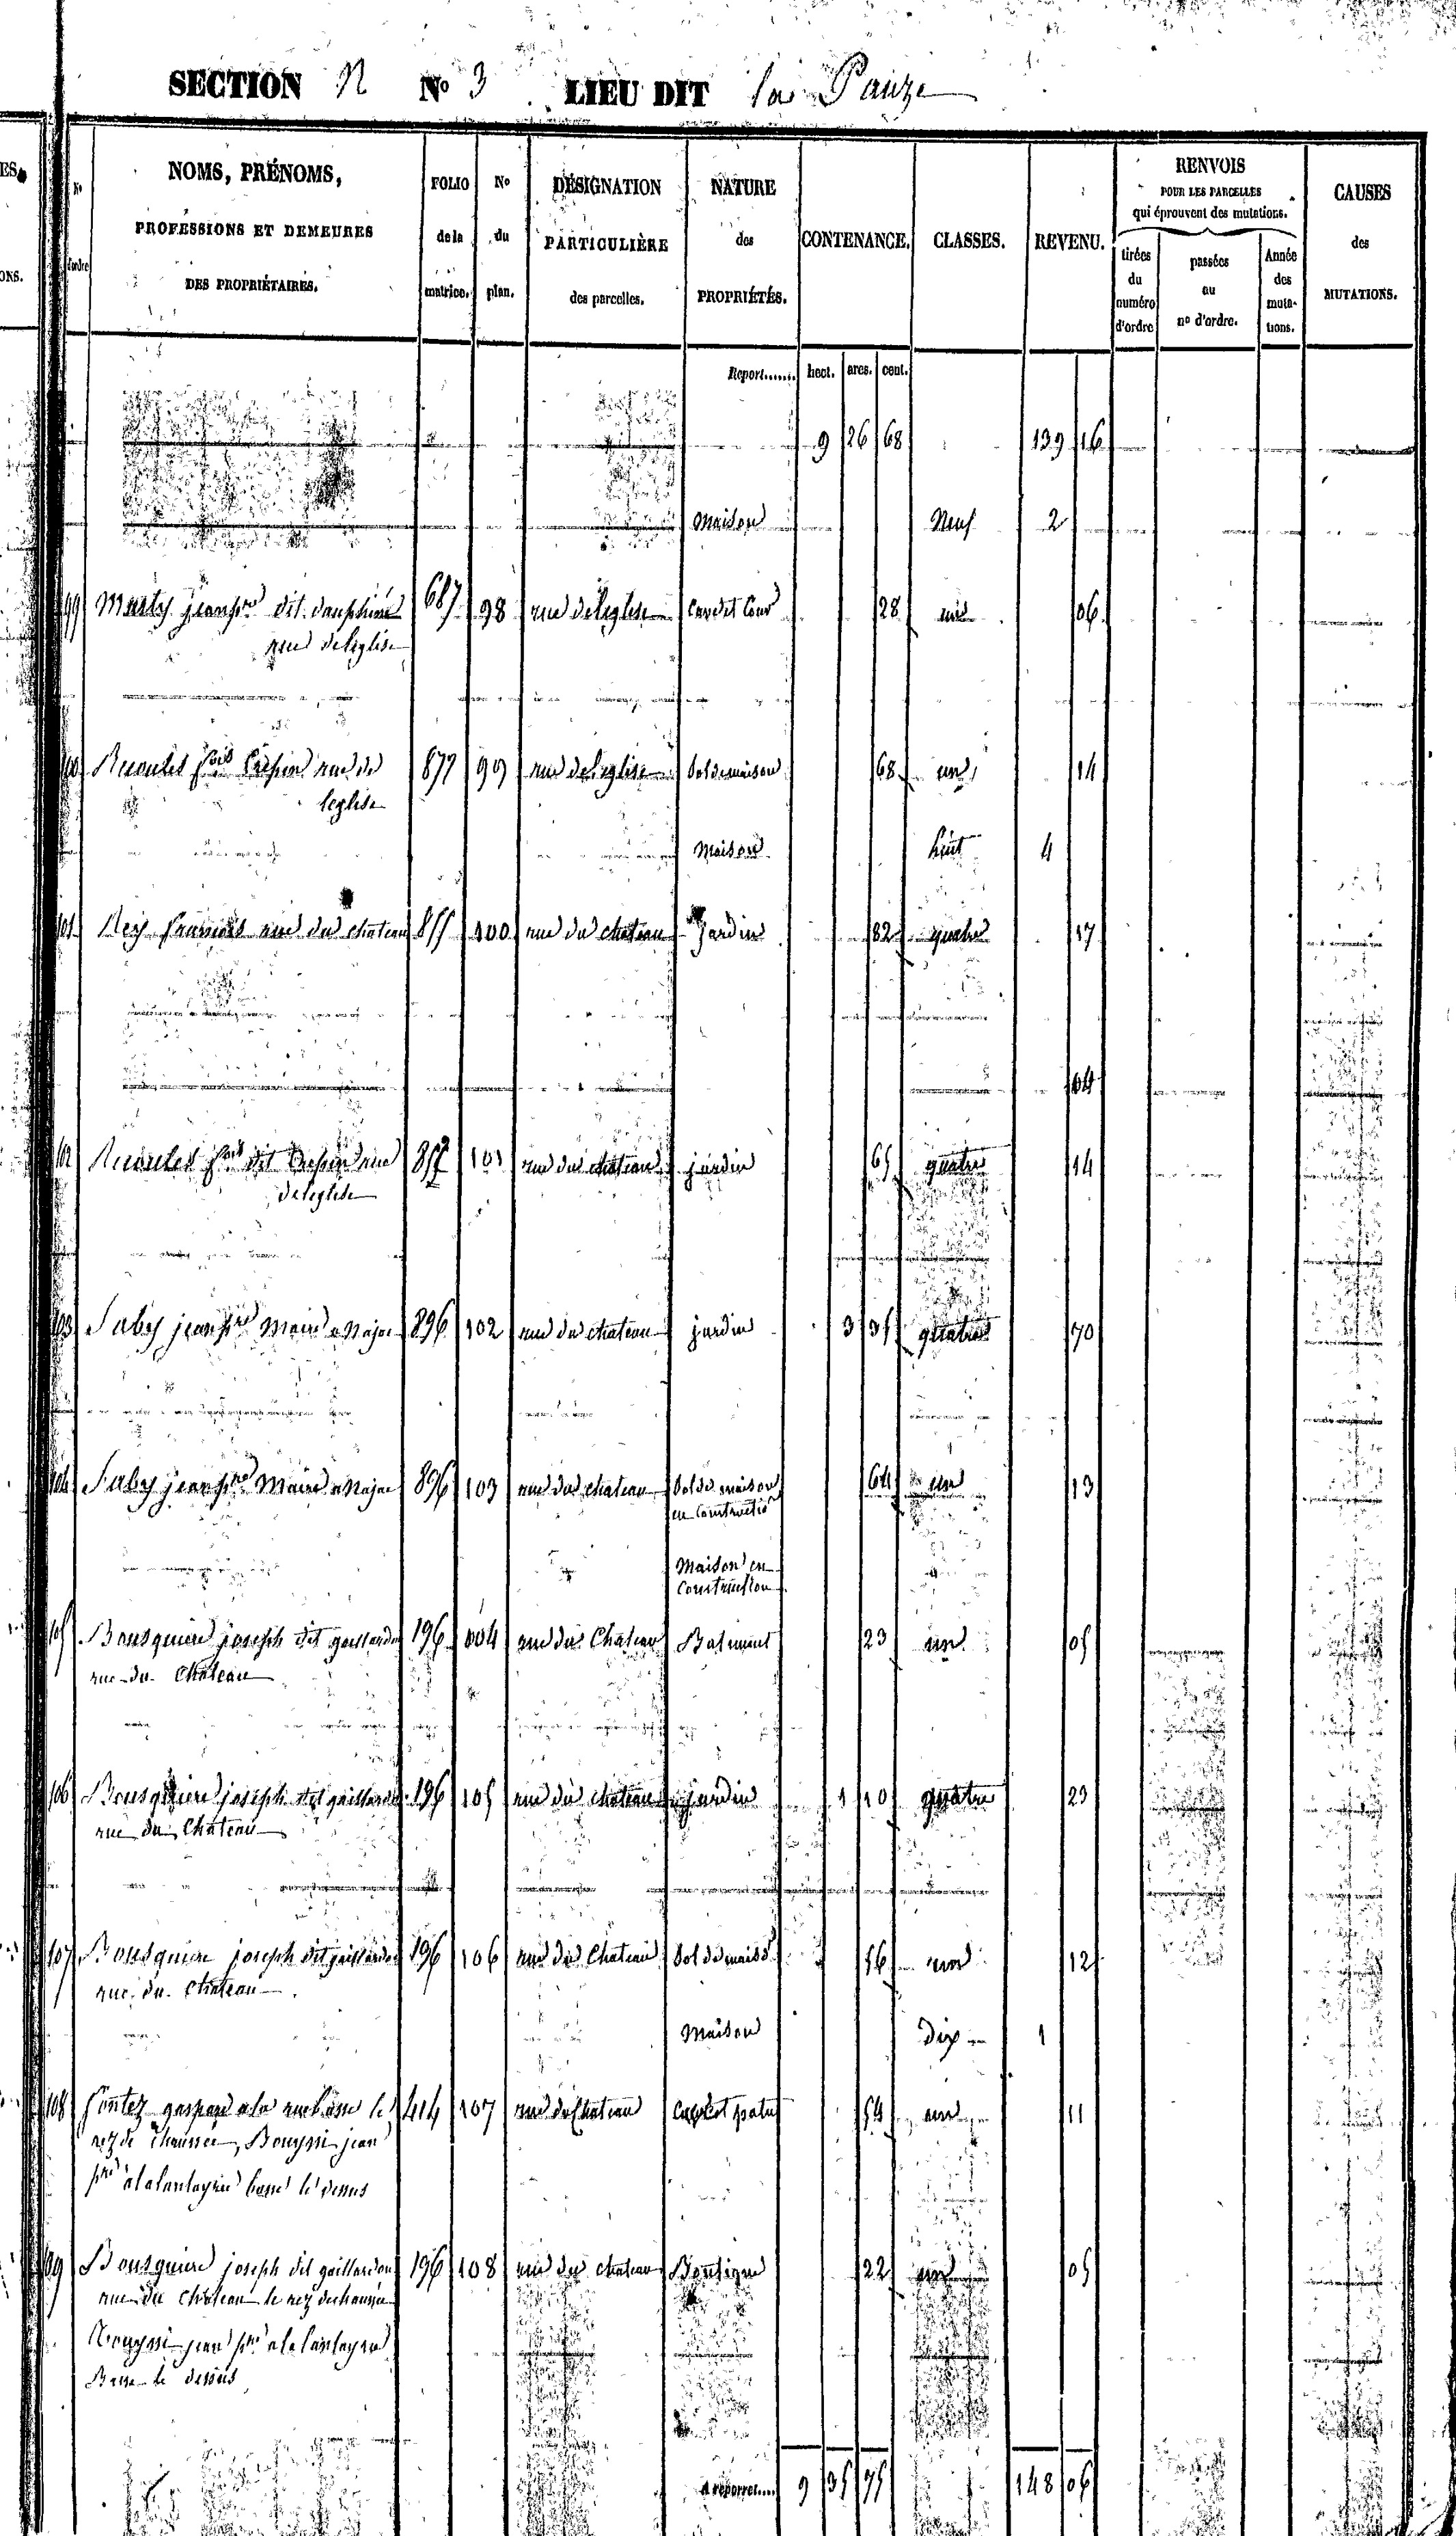 SECTION N No 3 LIEU DIT la Pauze
ES.
ONS.
No d'ordre
NOMS, PRÉNOMS,
PROFESSIONS ET DEMEURES
DES PROPRIÉTAIRES.
FOLIO
de la
matrice.
No
du
plan.
DÉSIGNATION
PARTICULIÈRE
des parcelles.
NATURE
des
PROPRIÉTÉS.
CONTENANCE.
CLASSES.
REVENU.
RENVOIS
POUR LES PARCELLES
qui éprouvent des mutations.
tirées
du
numéro
d'ordre
passées
au
no d'ordre.
Année
des
muta-
tions.
CAUSES
des
MUTATIONS.
Report...... hect. ares. cent.
9 26 68 139 16
Maison Neuf 2
99 Marty jean pre dit dauphiné 687 98 rue de leglise 28 un 06
rue de leglise
100 fois Crespin rue de 877 99 rue de leglise Sol de maison 68 un 14
leglise
Maison huit 4
101 Rey francois rue du chateau 855 100 rue du chateau jardin 82 quatre 17
04
102 fois dit Crespin rue 877 101 rue du chateau jardin 65 quatre 14
de leglise
103 Saby jean pre Maire a Najac 896 102 rue du chateau jardin 3 35 quatre 70
104 Saby jean pre Maire a Najac 896 103 rue du chateau Sol de maison 64 un 13
en Constructio
Maison en
Construction
105 Bousquiere joseph dit gaillardou 196 104 rue du Chateau Batiment 23 un 05
rue du Chateau
106 Bousquiere joseph dit gaillardou 196 105 rue du chateau jardin 1 10 quatre 23
rue du Chateau
107 Bousquiere joseph dit gaillardou 196 106 rue du Chateau Sol de maiso 56 un 12
rue du Chateau
Maison dix 1
108 gaspard a la rue basse le 414 107 rue du Chateau 54 un 11
rez de chaussée, Bouyssi jean
pre basse le dessus
109 Bousquiere joseph dit gaillardou 196 108 rue du chateau Boutique 22 un 05
rue du Chateau le rez dechaussée
Bouyssi jean pre
Basse le dessus
A reporter.... 9 35 75 148 06